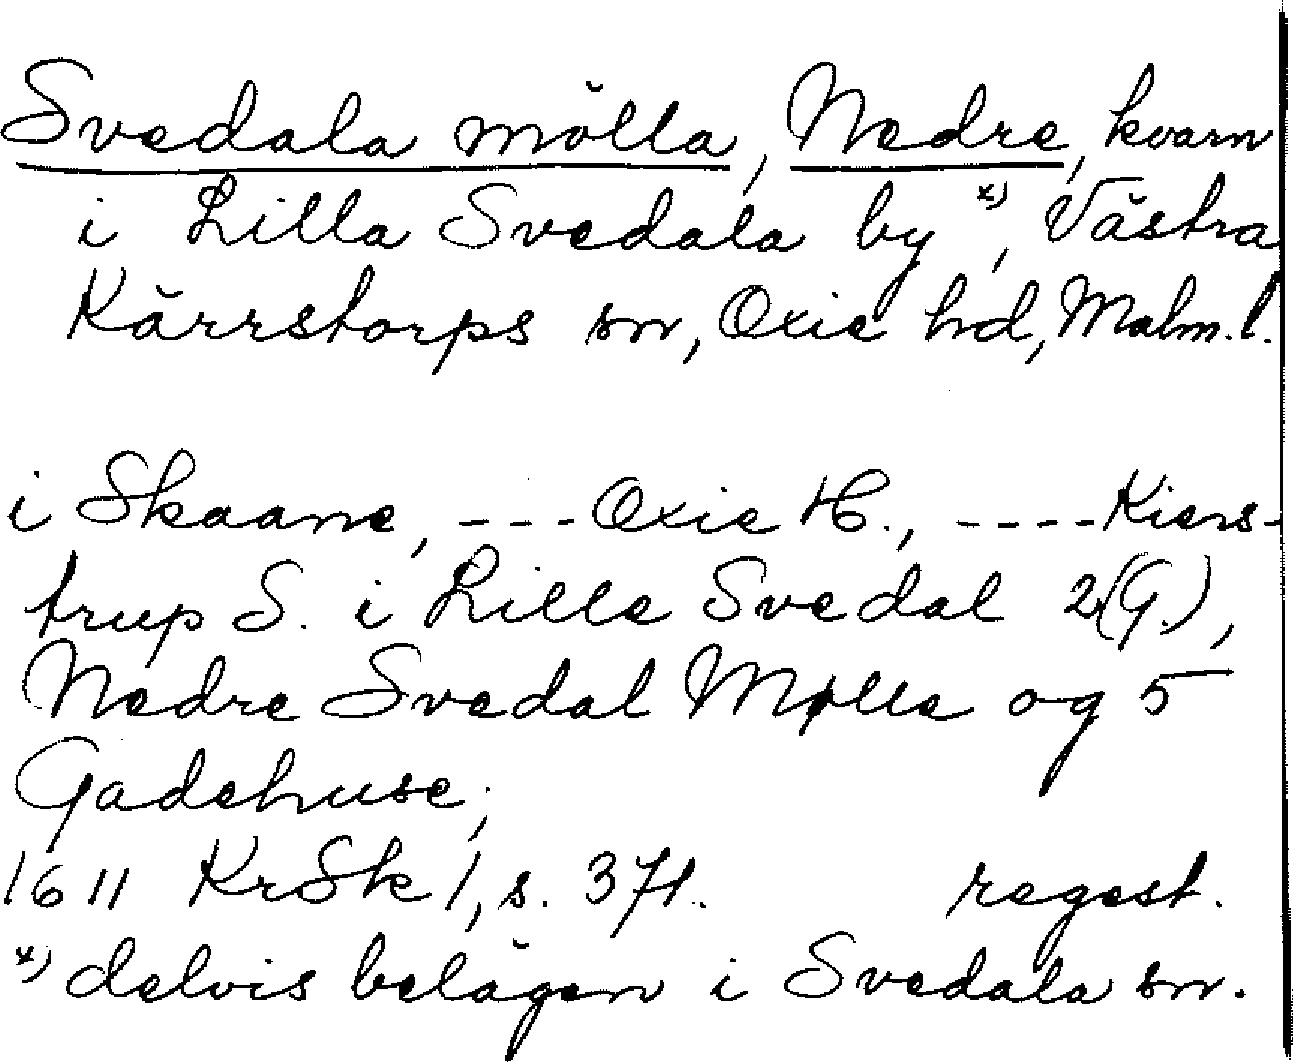 Svedala mölla, Nedre, kvarn
i Lilla Svedala by x), Västra
Kärrstorps sn, Oxie hd, Malm. l.
i Skaane, --- Oxie H., ---- Kiers-
trup S. i Lille Svedal 2(G.),
Nedre Svedal Mølle og 5
Gadehuse;
1611 KrSk 1, s. 371. regest.
x) delvis belägen i Svedala sn.